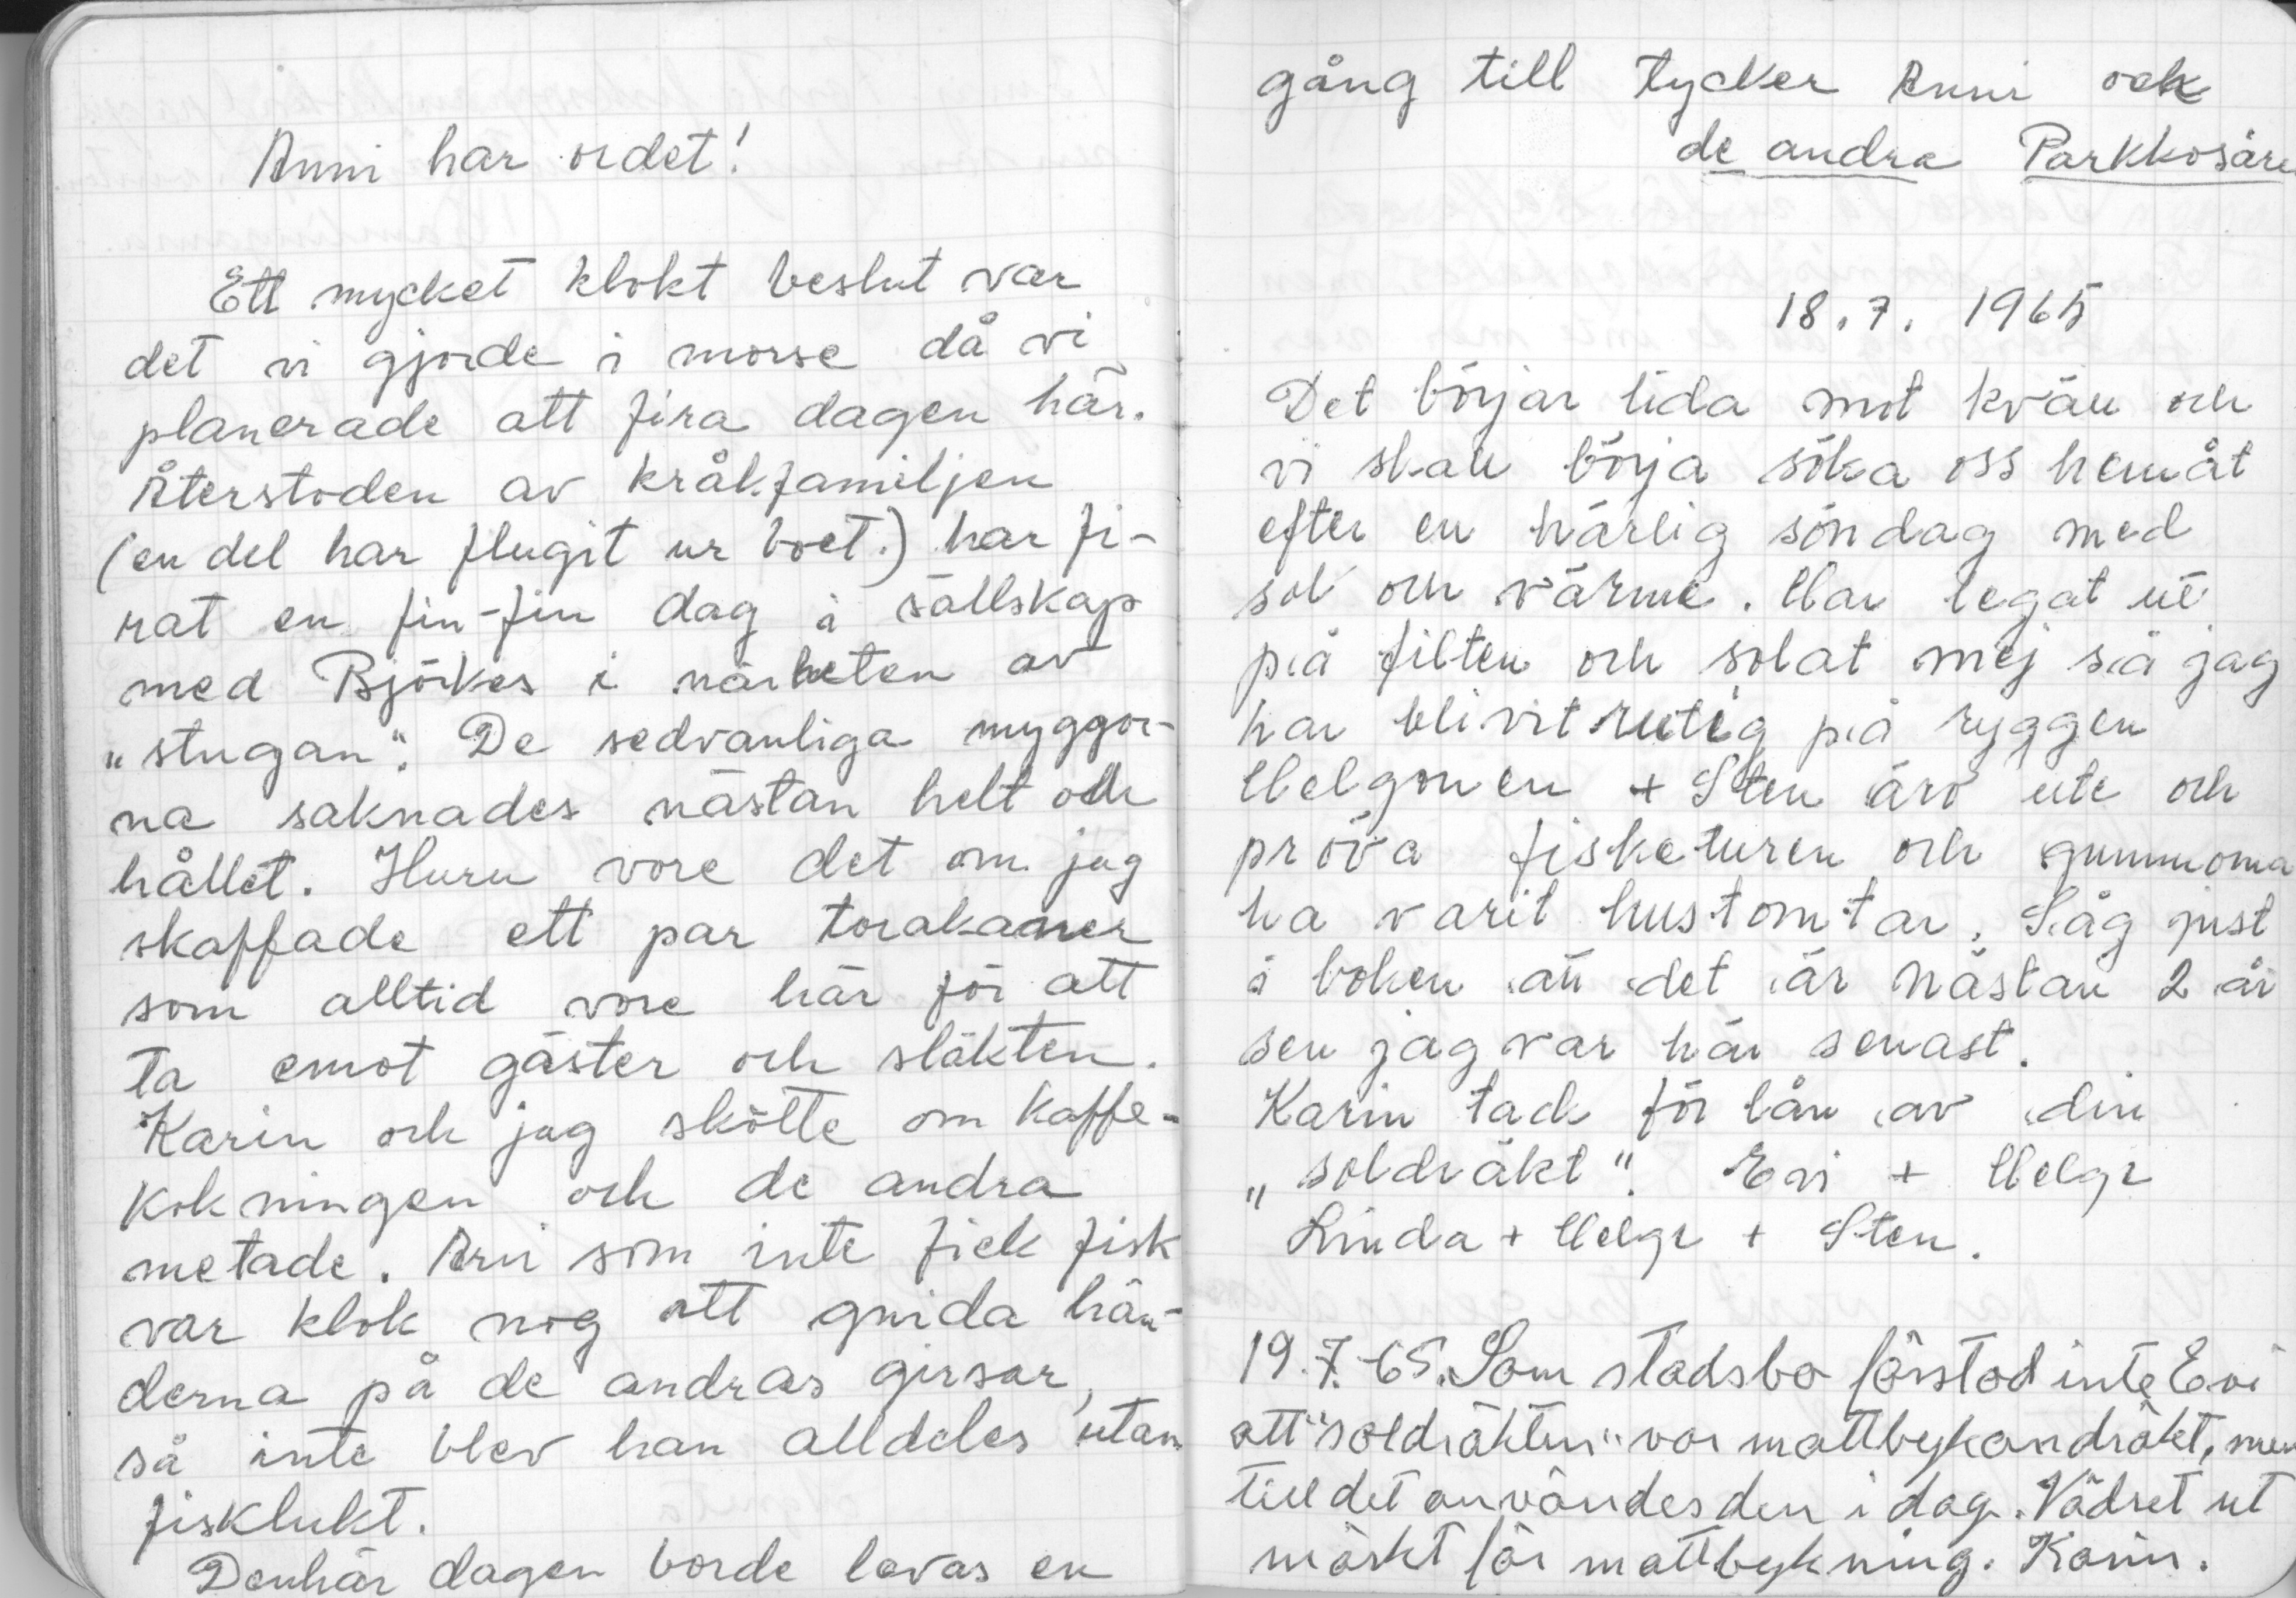 Anni har ordet!
Ett mycket klokt beslut var
det vi gjorde i morse då vi
planerade att fira dagen här.
Återstoden av kråkfamiljen
(en del har flugit ur boet.) har fi-
rat en fin-fin dag i sällskap
med Björkes i närheten av
„stugan“. De sedvanliga myggor-
na saknades nästan helt och
hållet. Huru vore det om jag
skaffade ett par torakaner
som alltid vore här för att
ta emot gäster och släkten.
Karin och jag skötte om kaffe-
kokningen och de andra
metade. Arvi som inte fick fisk
var klok nog att gnida hän-
derna på de andras girsar,
så inte blev han alldeles utan
fisklukt.
Denhär dagen borde levas en
gång till tycker Anni och
de andra Parkkosare
18.7. 1965
Det börjar lida mot kväll och
vi skall börja söka oss hemåt
efter en härlig söndag med
sol och värme. Har legat ute
på filten och solat mej så jag
har blivit rutig på ryggen
Helgonen + Sten äro ute och
pröva fisketuren och gummorna
ha varit hustomtar. Såg just
i boken att det är nästan 2 år
sen jag var här senast.
Karin tack för lån av din
„soldräkt“. Evi + Helge
Linda + Helge + Sten.
19.7.65. Som stadsbo förstod inte Evi
att "soldräkten" var mattbykardräkt, men
till det användes den i dag. Vädret ut
märkt för mattbykning. Karin.